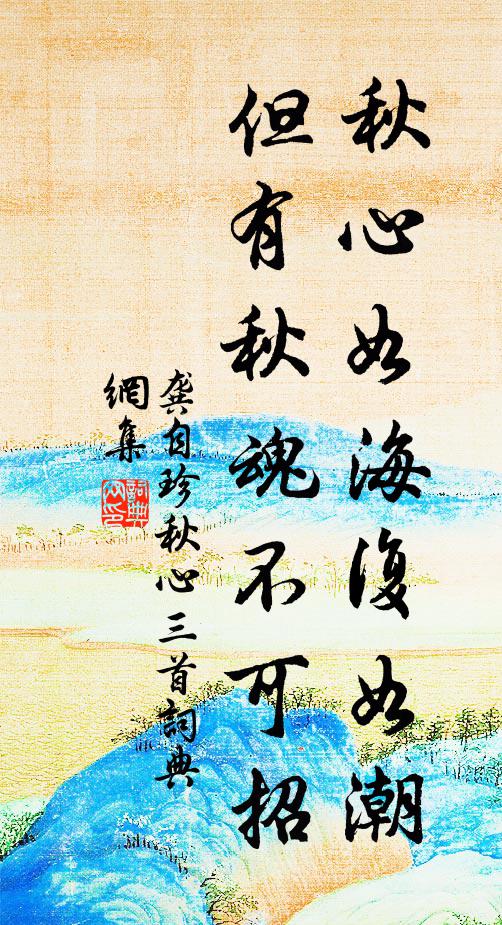 秋心如海復如潮
但有秋魂不可招
龔自珍秋心三首詞典
網集
詞典